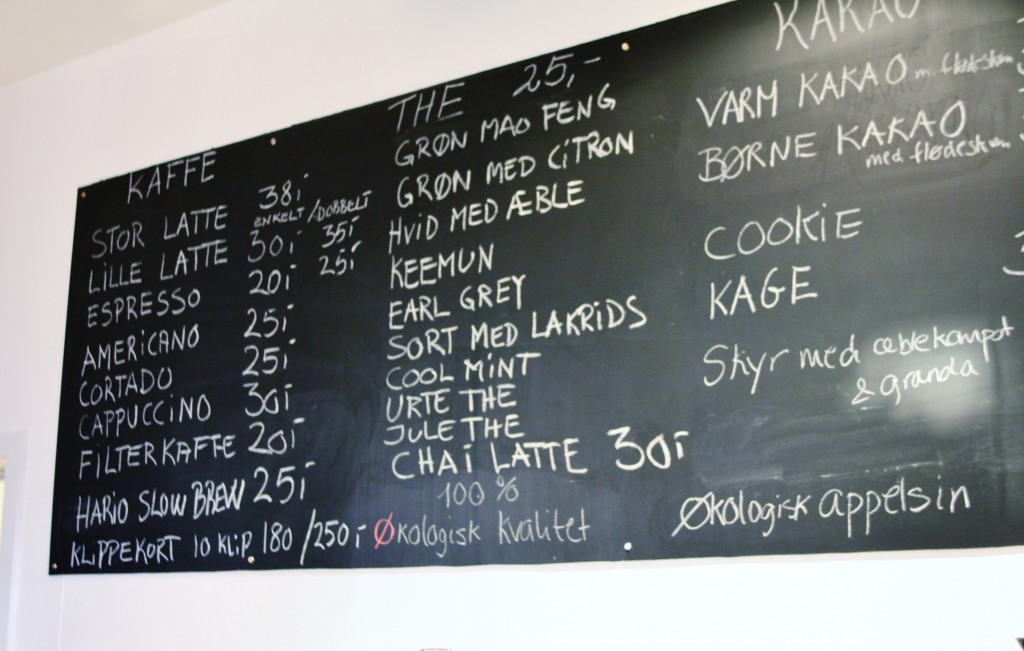 KAFFE
STOR LATTE 38,-
ENKELT/DOBBELT
LILLE LATTE 30,- 35,-
ESPRESSO 20,- 25,-
AMERICANO 25,-
CORTADO 25,-
CAPPUCCINO 30,-
FILTERKAFFE 20,-
HARIO SLOW BREW 25,-
KLIPPEKORT 10 KLIP 180/250,-
THE 25,-
GRØN MAO FENG
GRØN MED CITRON
HVID MED ÆBLE
KEEMUN
EARL GREY
SORT MED LAKRIDS
COOL MINT
URTE THE
JULE THE
CHAI LATTE 30,-
100 %
Økologisk kvalitet
KAKAO
VARM KAKAO m. flødeskum
BØRNE KAKAO
med flødeskum
COOKIE
KAGE
Skyr med æblekompot
& granola
Økologisk appelsin